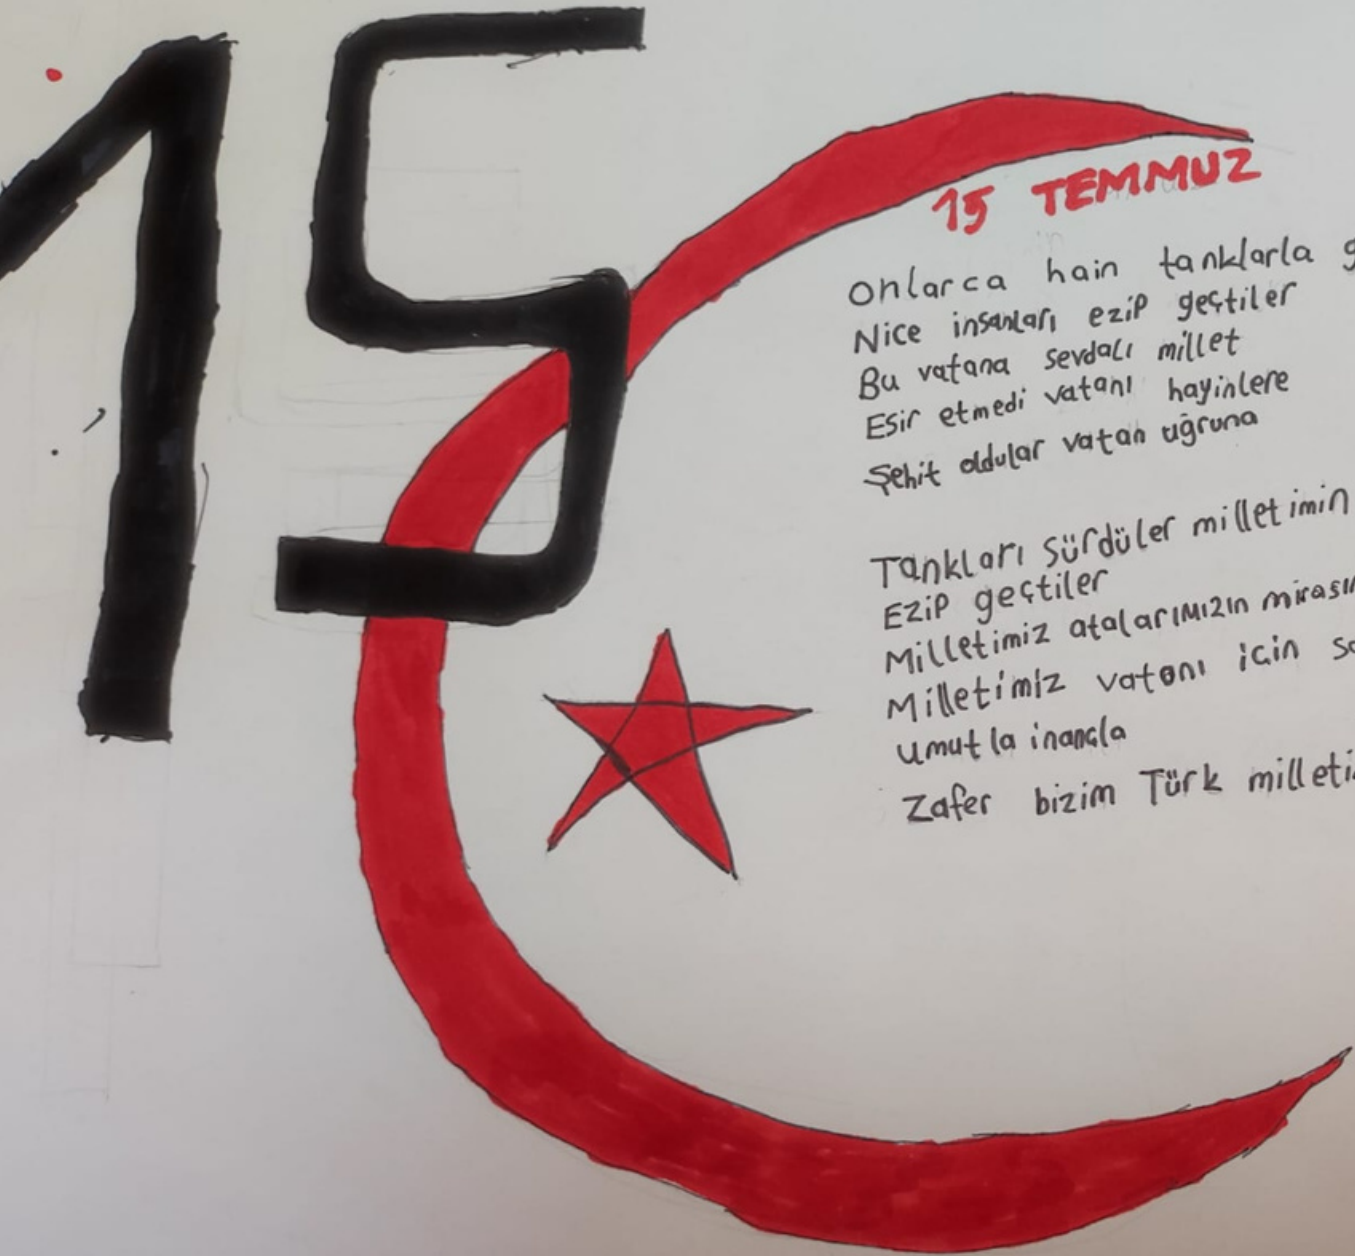 15
15 TEMMUZ
Onlarca hain tanklarla
Nice insanları ezip geçtiler
Bu vatana sevdalı millet
Esir etmedi vatanı hayinlere
Şehit oldular vatan uğruna
Tankları sürdüler milletimin
Ezip geçtiler
Milletimiz atalarımızın
Milletimiz vatanı için
umutla inançla
Zafer bizim Türk